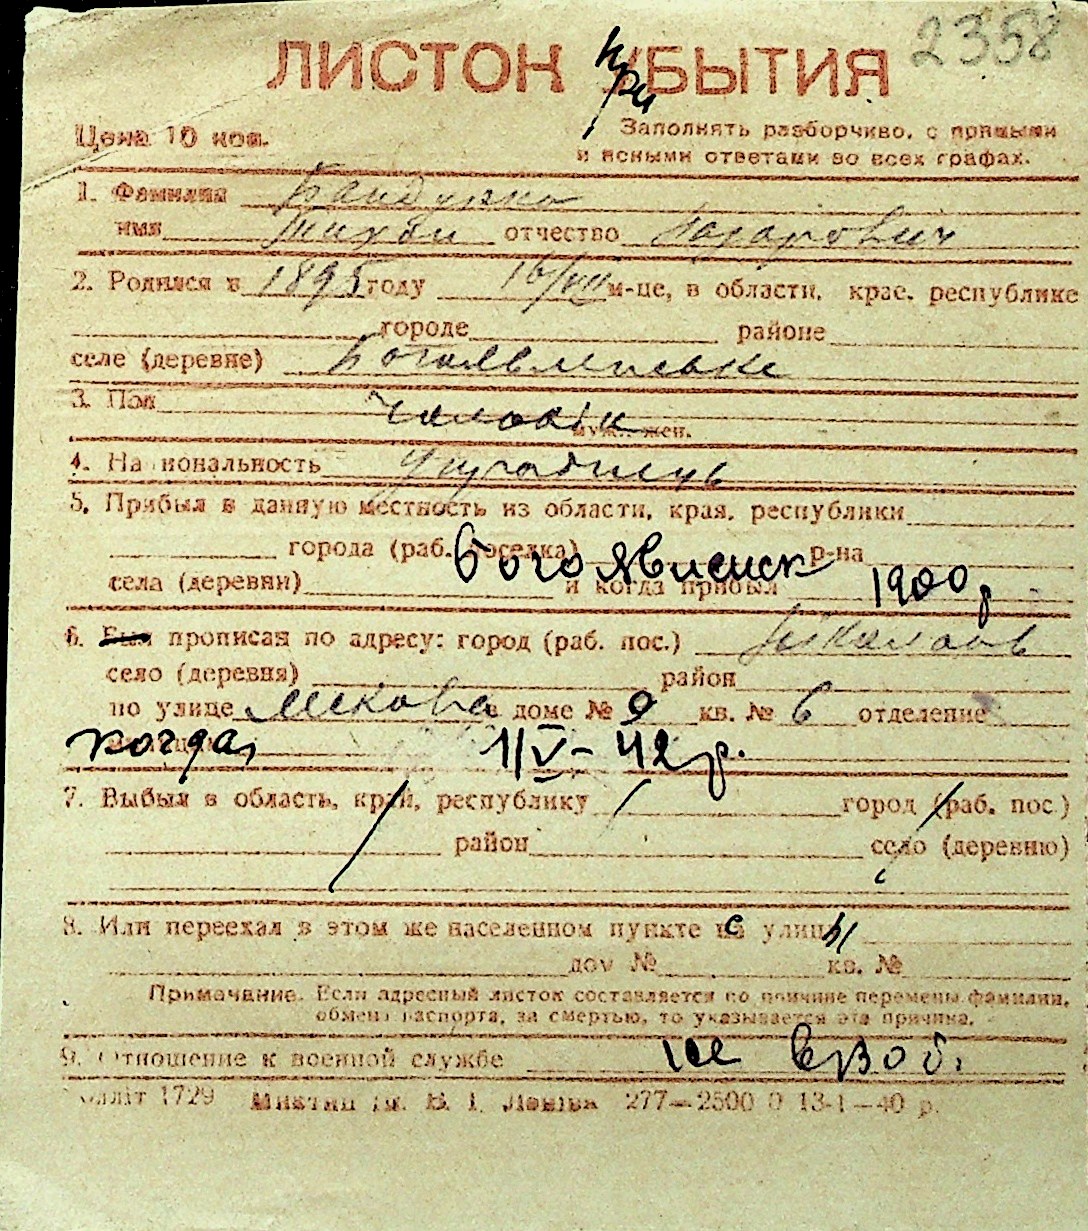 2358
ЛИСТОК при УБЫТИЯ
Цена 10 коп.
Заполнять разборчиво, с прямыми
и ясными ответами во всех графах.
1. Фамилия Бандурко
имя Тихон отчество Назарович
2. Родился в 1895 году 16/VIII м-це, в области, крае, республике
городе районе
селе (деревне) Богоявленське
3. Пол Чоловік
муж. жен.
4. Национальность Українець
5. Прибыл в данную местность из области, края, республики
города (раб. поселка) Богоявленск р-на
села (деревни) и когда прибыл 1900 р
6. Был прописан по адресу: город (раб. пос.) Миколаів
село (деревня) район
по улице доме № 9 кв. № 6 отделение
когда, 1/V - 42 р.
7. Выбыл в область, край, республику город (раб. пос.)
район село (деревню)
8. Или переехал в этом же населенном пункте с улицы
дом № кв. №
Примечание. Если адресный листок составляется по причине перемены фамилии,
обмена паспорта, за смертью, то указывается эта причина.
9. Отношение к военной службе не
1729 277—2500 0 13-1—40 р.